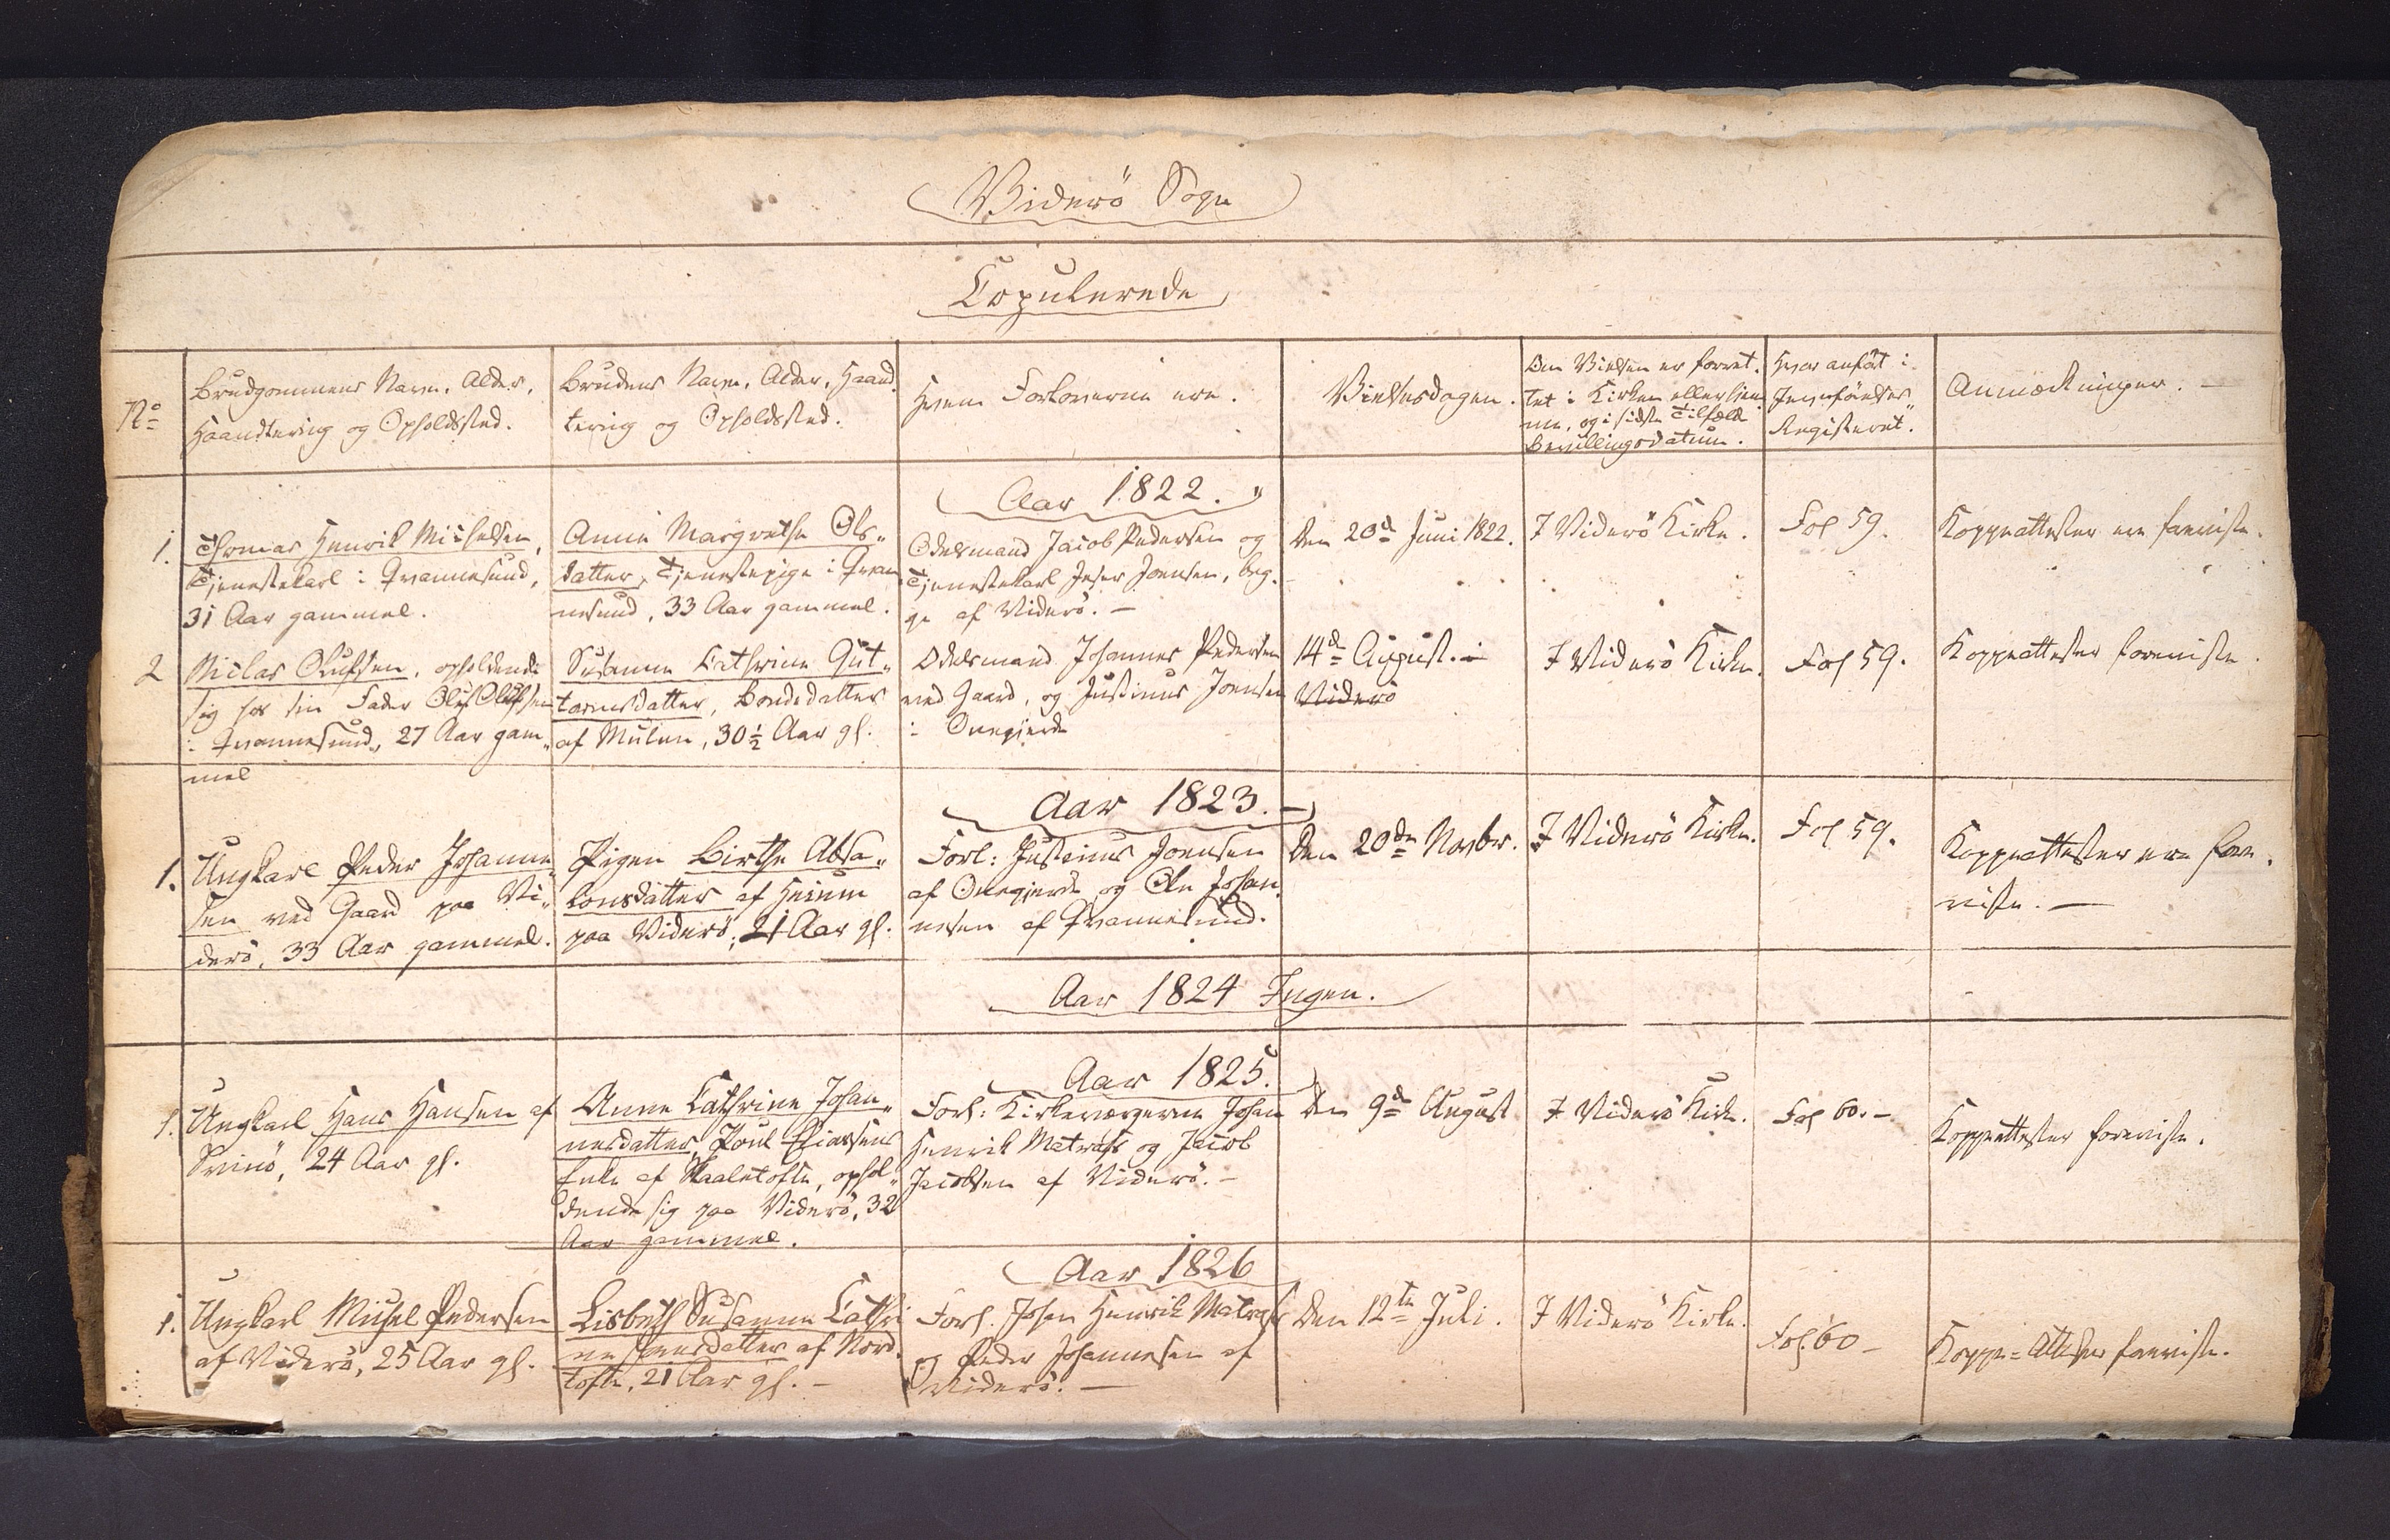 Viderö Sogn
Copulerede
No
Brudgommens Navn, Alder,
Haandtering og Opholdssted.
Brudens Navn, Alder, Haand
tering og Opholdssted.
Hvem Forloverne ere.
Vielsesdagen.
Om Vielsen er forret-
tet i Kirken eller hjem
me, og i sidste Tilfælde
Bevillingsdatum.
Hvor anført i
Jevnførelses
Registeret.
Anmærkninger. -
Aar 1822.
1.
Thomas Henrik Michelsen,
Tjenestekarl i Qvannesund,
31 Aar gammel.
Anne Margrethe Ols„
datter, Tjenestepige i Qvan
nesund, 33 Aar gammel.
Odelsmand Jacob Pedersen og
Tjenestekarl Joen Joensen, beg-
ge af Viderö. -
Den 20d Juni 1822.
I Viderö Kirke.
Fol 59.
Koppeattester ere foreviste.
2
Niclas Olufsen, opholdende
sig hos sin Fader Oluf Olufsen
i Qvannesund, 27 Aar gam„
mel
Susanne Cathrine Gut„
tormsdatter, Bondedatter
af Mulen, 30½ Aar gl.
Odelsmand Johannes Pedersen
ved Gaard, og Justinus Joensen
i Onegjerde
14de August. i
Viderö
I Viderö Kirke.
Fol 59.
Koppeattester foreviste.
Aar 1823. -
1.
Ungkarl Peder Johanne„
sen ved Gaard paa Vi„
derö, 33 Aar gammel.
Pigen Birthe Absa„
lonsdatter af Heium
paa Viderö, 21 Aar gl.
Forl: Justinus Joensen
af Onegjerde og Ole Johan
nesen af Qvannesund.
Den 20de Novbr.
I Viderö Kirke.
Fol 59.
Koppeattester ere fore-
viste. -
Aar 1824 Ingen.
Aar 1825.
1.
Ungkarl Hans Hansen af
Svinö, 24 Aar gl.
Anne Cathrine Johan„
nesdatter, Poul Eliassens
Enke af Skaaletofte, ophol„
dende sig paa Viderö, 32
Aar gammel.
Forl: Kirkeværgerne Johan
Henrik Matras og Jacob
Jacobsen af Viderö. -
Den 9de August
I Viderö Kirke.
Fol 60. -
Koppeattester foreviste.
Aar 1826
1.
Ungkarl Michel Pedersen
af Viderö, 25 Aar gl.
Lisbeth Susanne Cathri
ne Hansdatter af Nord-
tofte, 21 Aar gl. -
Forl. Johan Henrik Matras
og Peder Johannesen af
Viderö. -
Den 12te Juli.
I Viderö Kirke.
Fol. 60 -
Koppe=Attester foreviste.